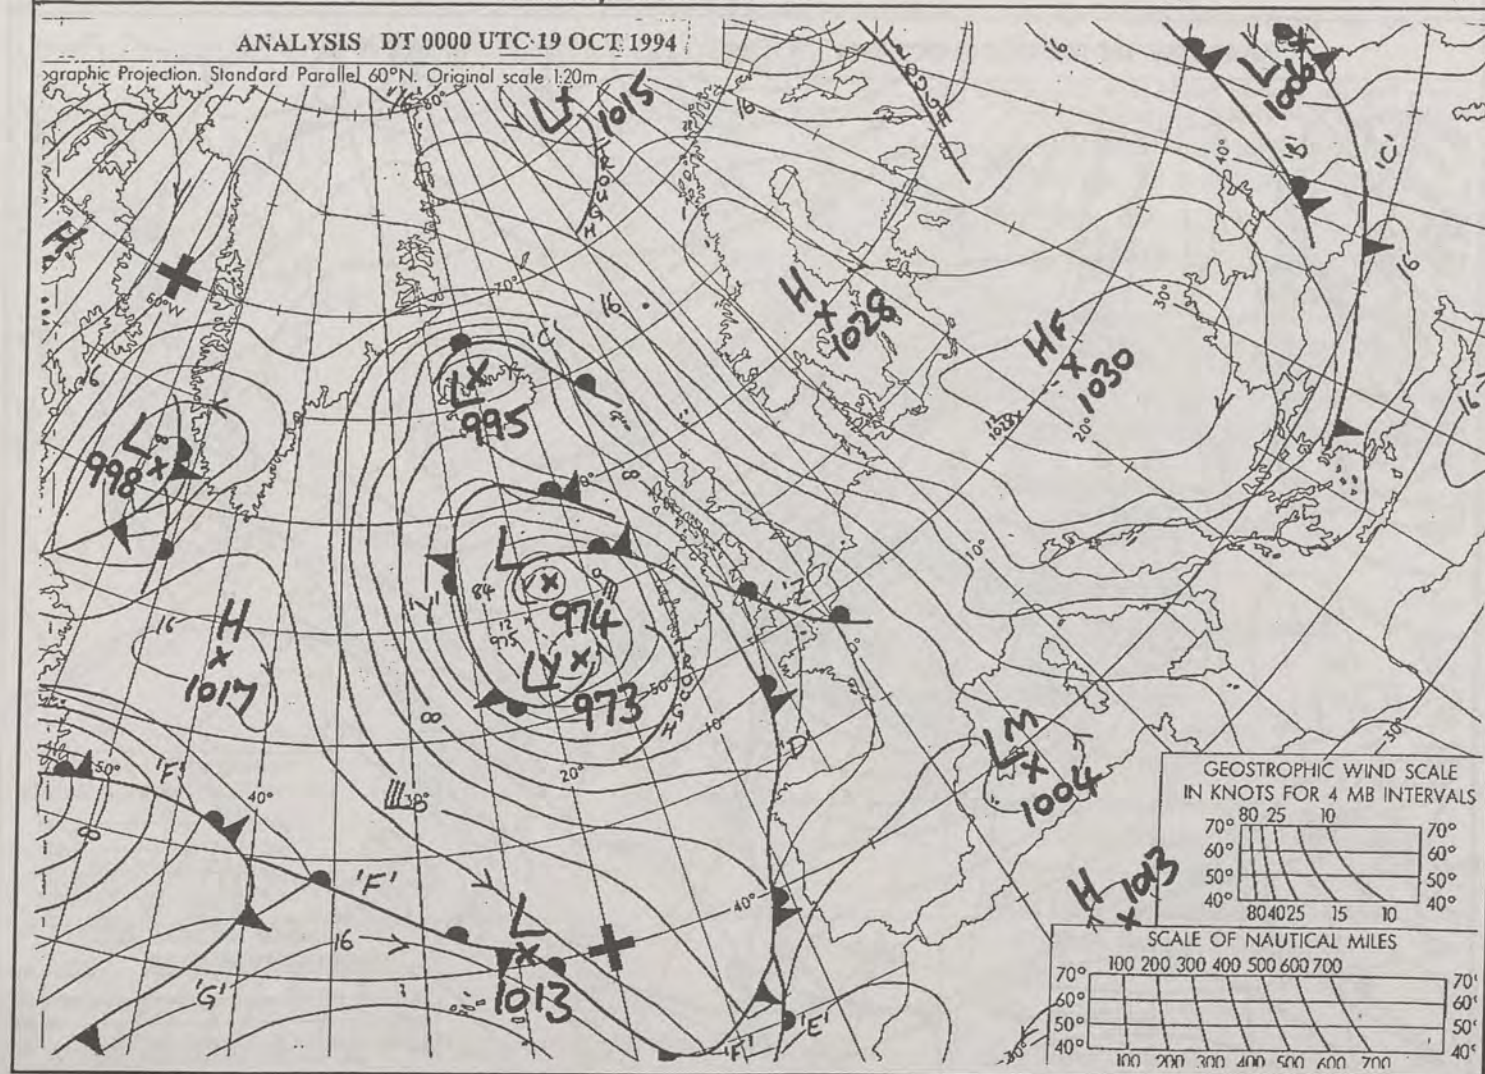 ANALYSIS DT 0000 UTC 19 OCT 1994
ographic Projection. Standard Parallel 60°N. Original scale 1:20m
80°
L
1015
TROUGH
16
TROUGH
16
L
1006
'B'
'C'
40°
H
60°W
70°
16
H
1028
HF
1030
30°
16
'C'
L
995
20°
16
L
998
10°
L
974
84
'Y'
'Z'
0°
16
H
1017
LY
973
TROUGH
50°
10
20°
'D'
LM
1004
30°
50°
'F'
40°
30°
8
'F'
L
1013
40°
16
'G'
H
1013
'E'
'F'
30°
GEOSTROPHIC WIND SCALE
IN KNOTS FOR 4 MB INTERVALS
80 25 10
70° 70°
60° 60°
50° 50°
40° 40°
80 40 25 15 10
SCALE OF NAUTICAL MILES
100 200 300 400 500 600 700
70° 70°
60° 60°
50° 50°
40° 40°
100 200 300 400 500 600 700